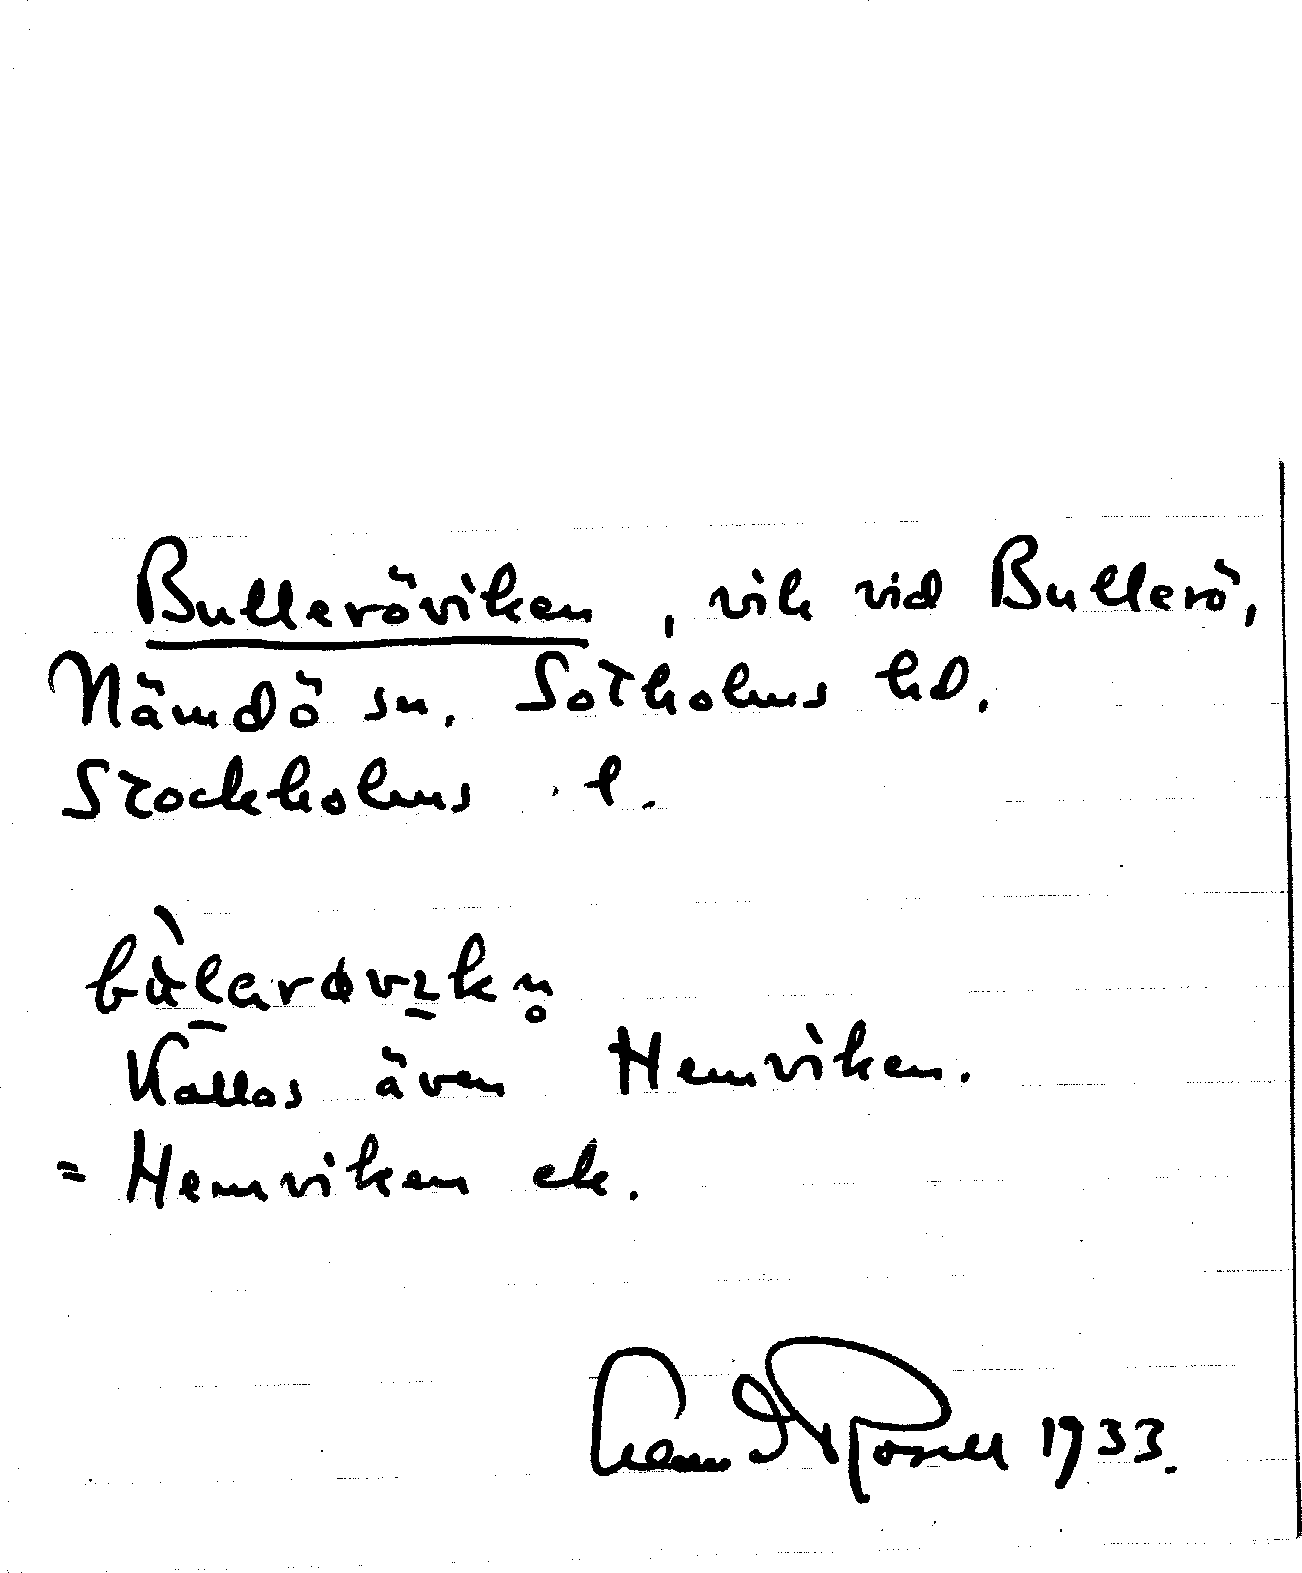 Bulleröviken, vik vid Bullerö,
Nämdö sn. Sotholms hd.
Stockholms l.
bùlarøvɩkn̥
Kallas även Hemviken.
= Hemviken ek.
1933.